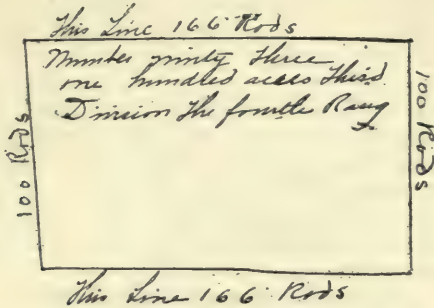 This Line 166 Rods
Number ninty three
one hundred acres third
Division the fourth Rang
100 Rods
100 Rods
This Line 166 Rods